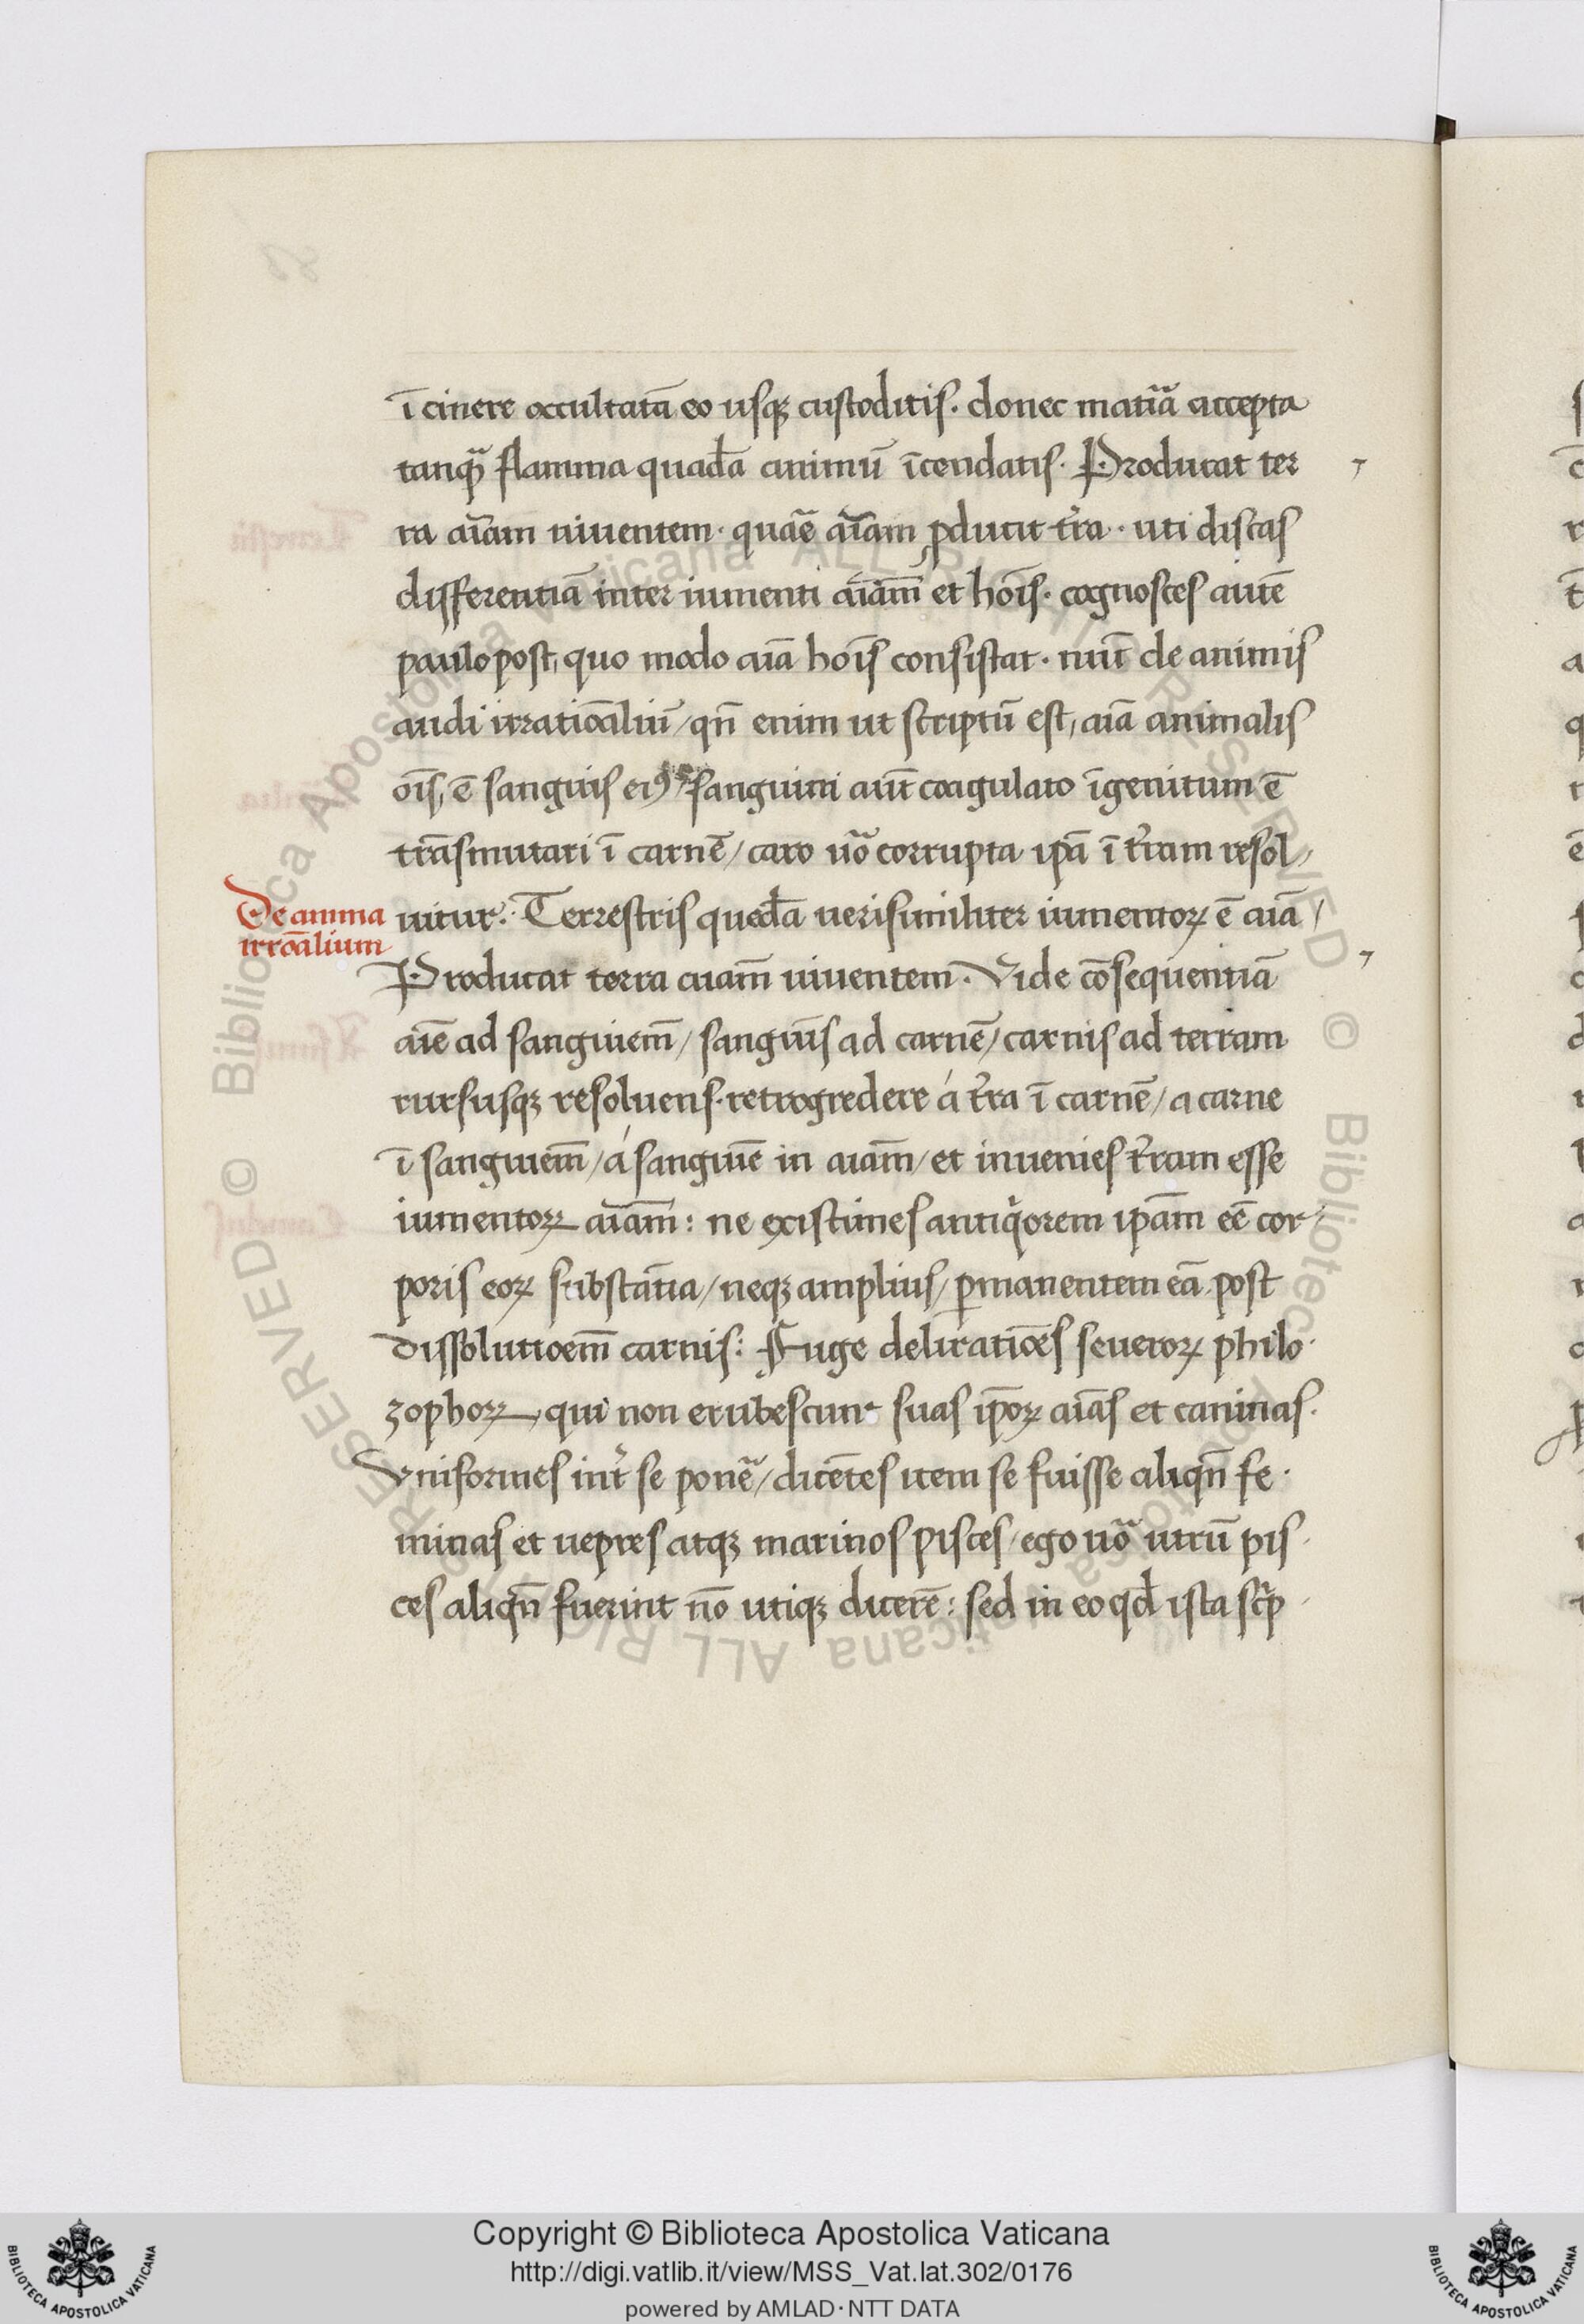 ī cinere occultatā eo usq₃ custoditis. donec matīā accepta
tanq̄ flamma quadā animū īcendatis. Producat ter
ra aīam uiuentem. quāe aīam ꝓducit tr̄a. uti discas
differentiā inter iumenti aīam̄ et hoīs. cognosces autē
paulo post, quo modo aīa hoīs consistat. nūc de animis
audi irratiōaliū / qn̄ enim ut scriptū est, aīa animalis
oīs, ē sanguis eiꝰ. sanguini aūt coagulato īgenitum ē
trāsmutari ī carnē / caro uō corrupta ip̄a ī tr̄am resol,
uitur. Terrestris quedā uerisimiliter iumentoꝝ ē aīa /
De anima
irroālium
Producat terra aīam̄ uiuentem. Vide cōsequentiā
aīe ad sanguiem̄ / sanguīs ad carnē / carnis ad terram
rursusq₃ resoluens. retrogredere á tr̄a ī carnē / a carne
ī sanguiem̄ / á sanguīe in aīam̄ / et inuenies tr̄am esse
iumentoꝝ aīam̄: ne existimes antiq̄orem ip̄am eē cor
poris eoꝝ substātia / neq₃ amplius / ꝑmanentem eā post
dissolutioem̄ carnis: Fuge deliratiōes seueroꝝ philo.
zophoꝝ, qui non erubescunt suas ip̄oꝝ aīas et caninas.
Vniformes int̄ se ponē / dicētes item se fuisse aliqn̄ fe.
minas et uepres atq₃ marinos pisces / ego uō utrū pis
ces aliqn̄ fuerint nō utiq₃ dicerē: sed in eo qđ ista scp̄
Copyright © Biblioteca Apostolica Vaticana
http://digi.vatlib.it/view/MSS_Vat.lat.302/0176
powered by AMLAD·NTT DATA